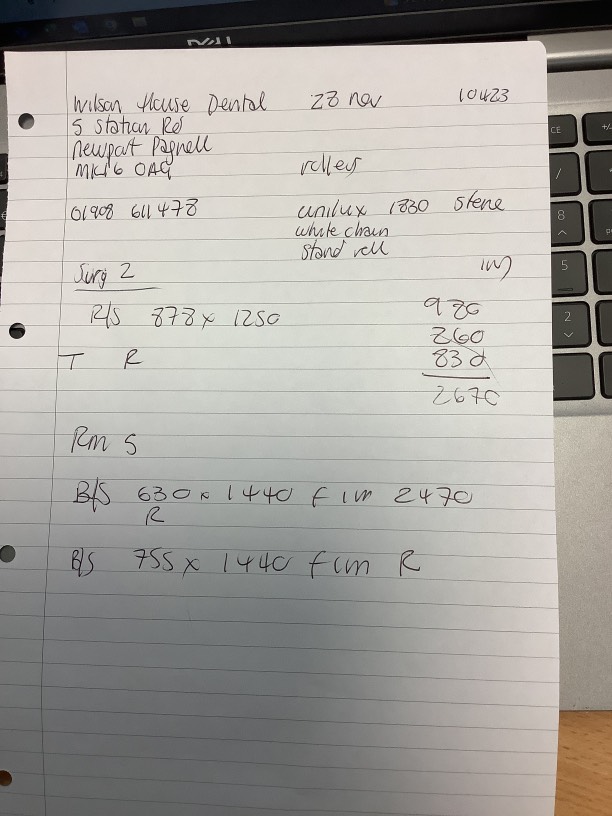 DELL
Wilson House Dental 28 nov 10423
5 Station Rd
Newport Pagnell
MK16 0AG
rollers
01908 611478
unilux 1830 stone
white chain
stand roll
Surg 2
R/S 878 x 1250
T R
980
260
830
2670
Rm 5
B/S 630 x 1440 f im 2470
R
B/S 755 x 1440 f im R
CE
+/-
/
8
5
2